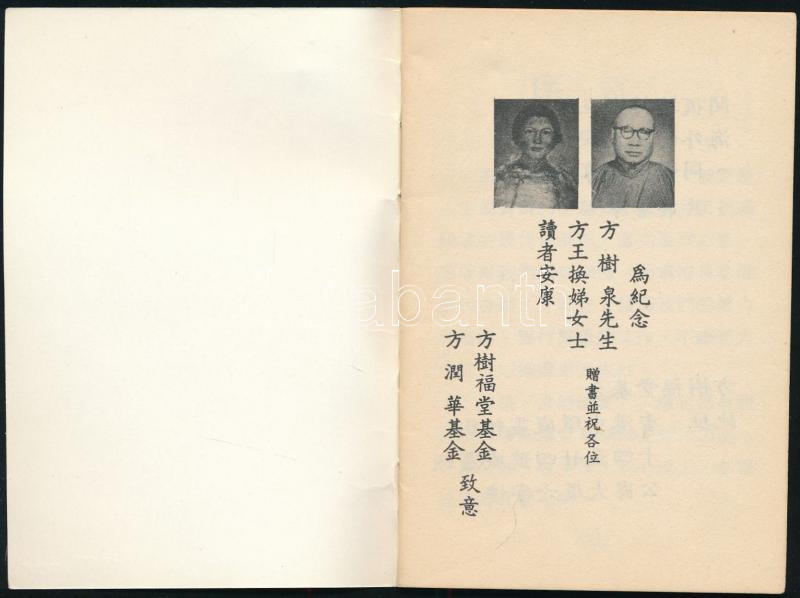 為紀念
方樹泉先生
方王換娣女士
贈書並祝各位
讀者安康
方樹福堂基金
方潤華基金
致意